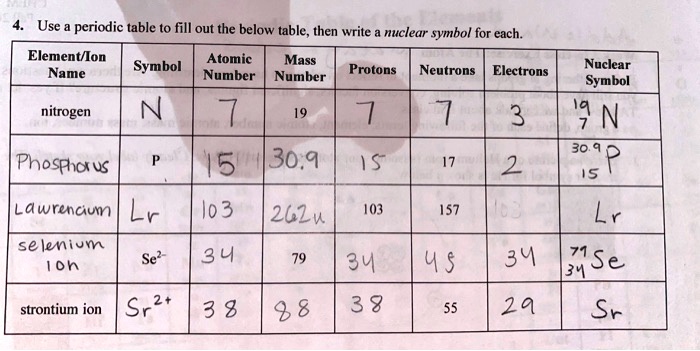 4. Use a periodic table to fill out the below table, then write a nuclear symbol for each.
Element/Ion Name Symbol Atomic Number Mass Number Protons Neutrons Electrons Nuclear Symbol
nitrogen N 7 19 7 7 3 19 7 N
Phosphorus P 15 30.9 15 17 2 30.9 15 P
Lawrencium Lr 103 262u 103 157 103 Lr
selenium ion Se²⁻ 34 79 34 45 34 79 34 Se
strontium ion Sr²⁺ 38 88 38 55 29 Sr